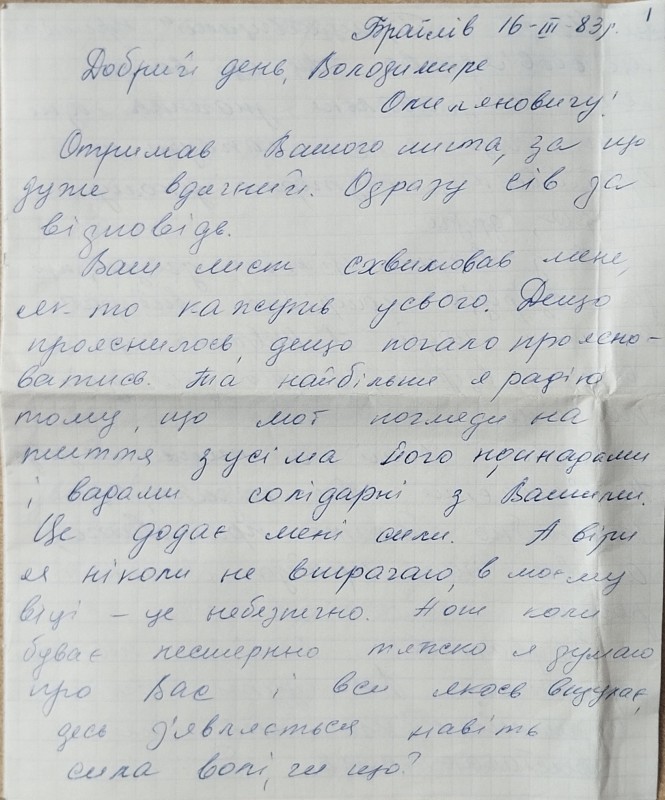 Браїлів 16-III-83р. 1
Добрий день, Володимире
Омеляновичу!
Отримав Вашого листа, за що
дуже вдячний. Одразу сів за
відповідь.
Ваш лист схвилював мене,
як то кажуть усього. Дещо
прояснилось, дещо почало проясню-
ватись. Та найбільше я радію
тому, що мої погляди на
життя з усіма його принадами
і вадами солідарні з Вашими.
Це додає мені сили. А віри
я ніколи не втрачаю, в моєму
віці – це небезпечно. Хоч коли
буває нестерпно тяжко я думаю
про Вас і все якось вщухає,
десь з'являється навіть
сила волі, чи що?